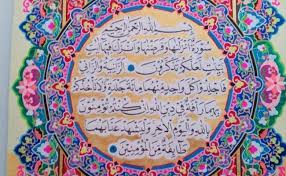 بسم الله الرحمن الرحيم
سورة أنزلناها وفرضناها وأنزلنا فيها آيات
بينات لعلكم تذكرون الزانية والزاني
فاجلدوا كل واحد منهما مائة جلدة ولا تأخذكم
بهما رأفة في دين الله إن كنتم تؤمنون
بالله واليوم الآخر وليشهد عذابهما
طائفة من المؤمنين